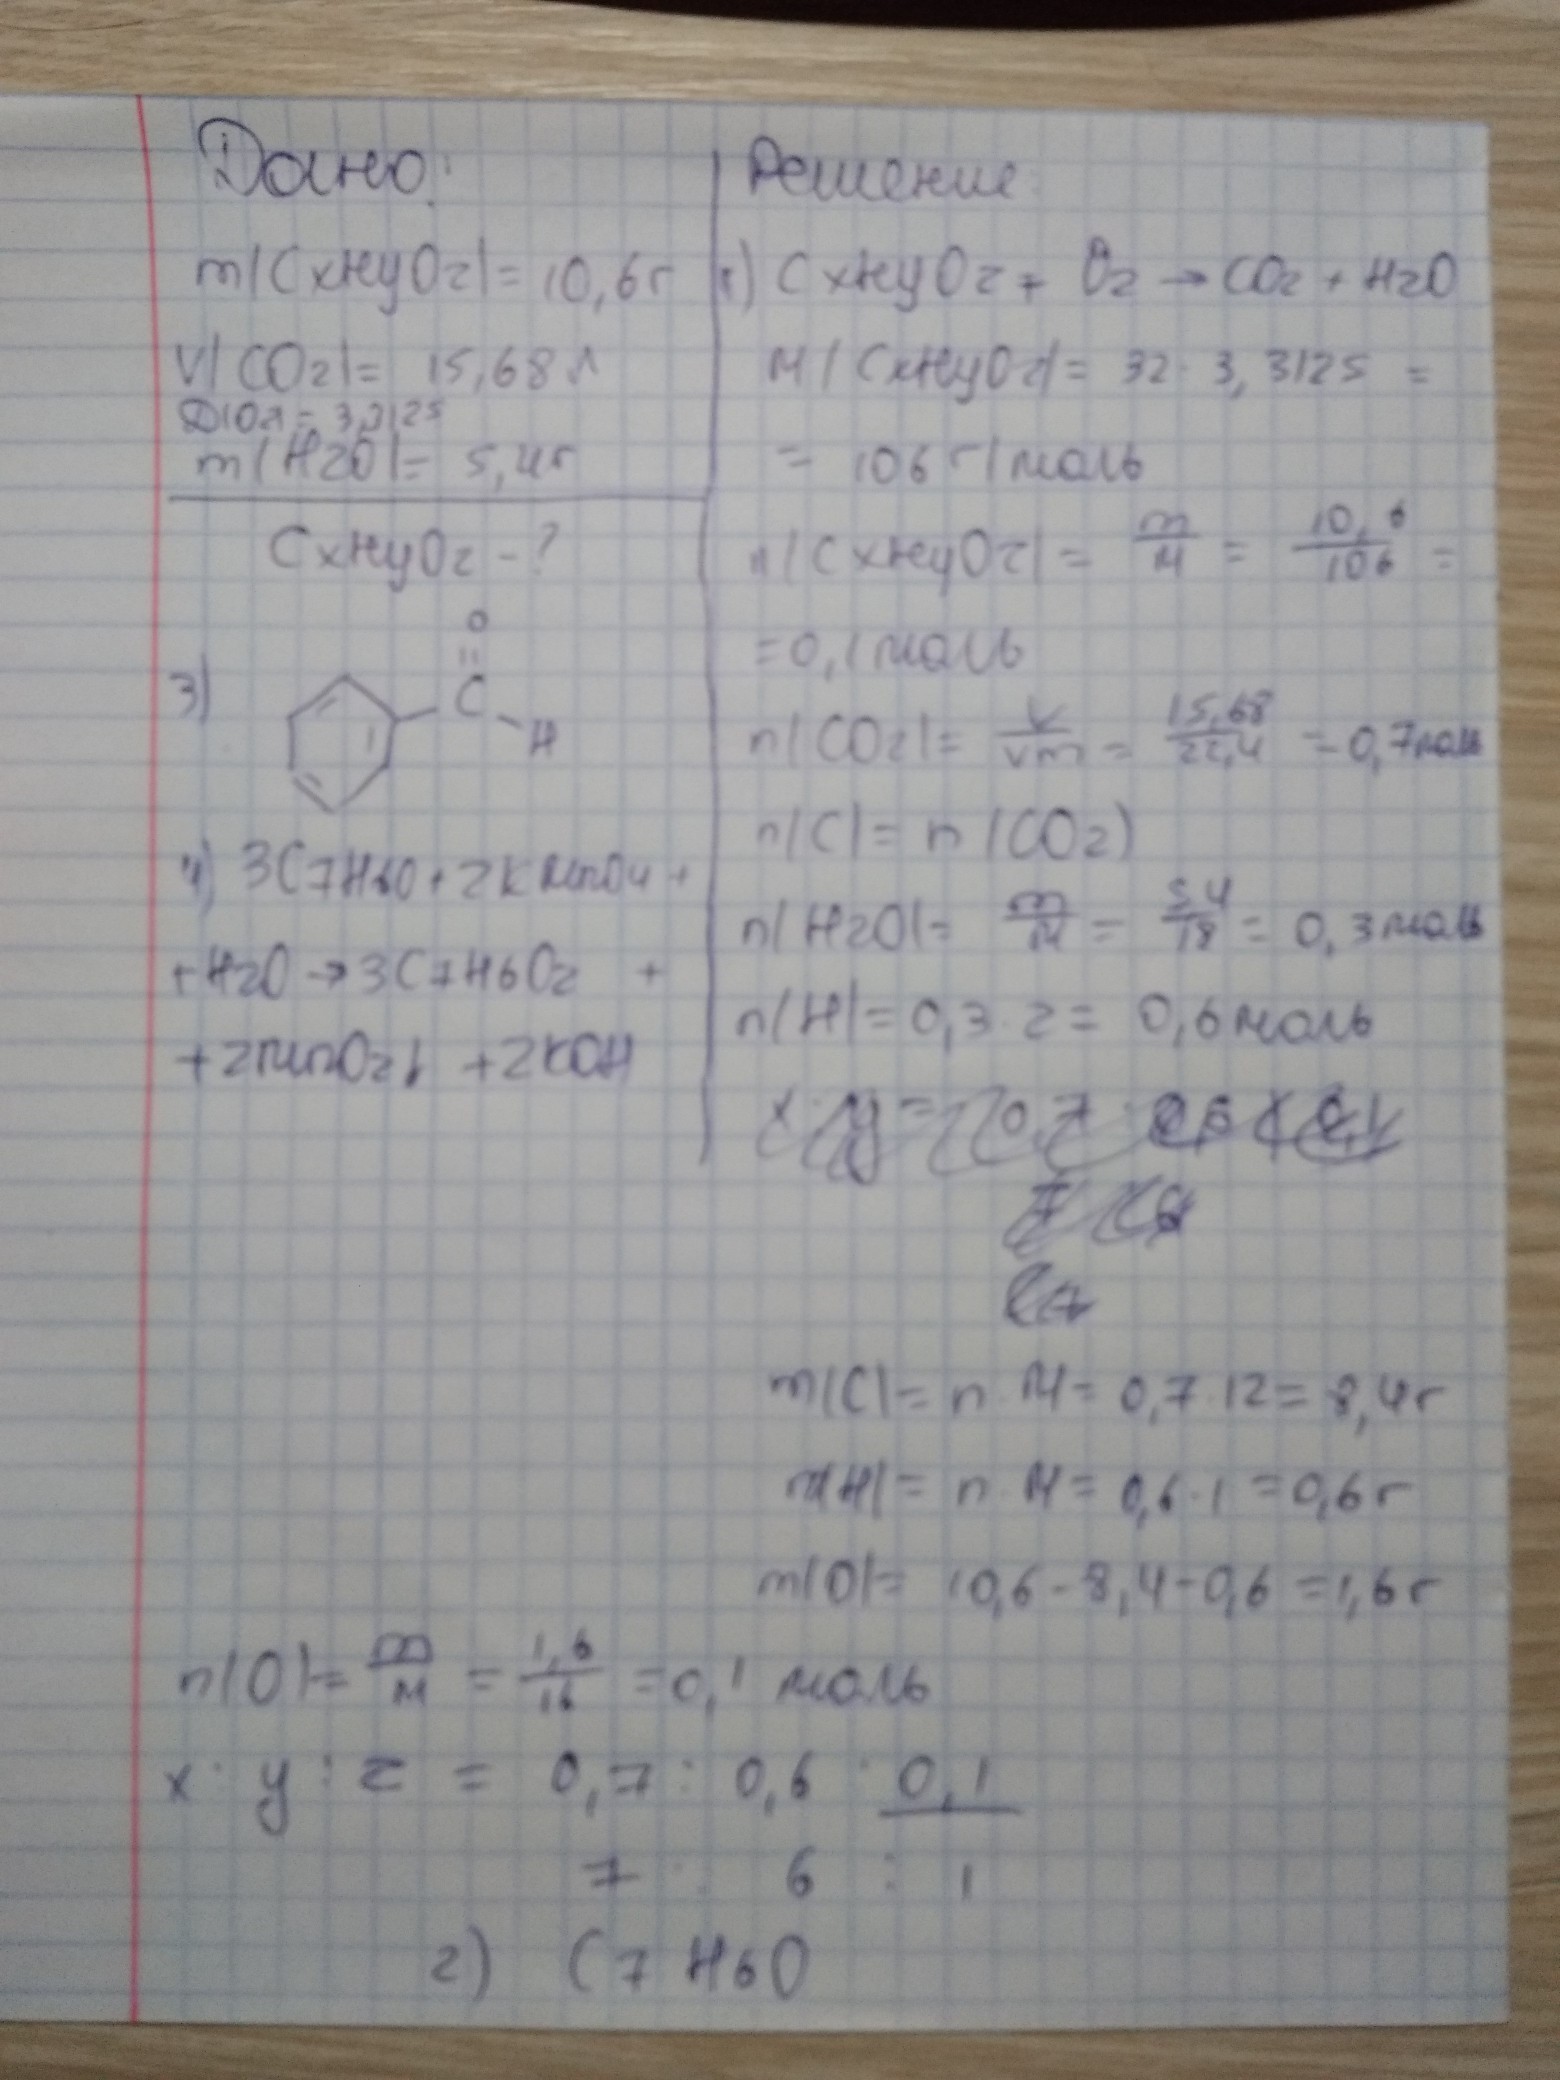 Дано:
m(CxHyOz)= 10,6г
V(CO2)= 15,68л
D(O2)= 3,3125
m(H2O)= 5,4г
CxHyOz-?
3)
O
C
H
4) 3C7H6O+2KMnO4+
+H2O→3C7H6O2 +
+2MnO2↓ +2KOH
Решение
1) CxHyOz + O2 →CO2 + H2O
M(CxHyOz)= 32·3,3125 =
= 106 г/моль
n(CxHyOz)= m/M = 10,6/106 =
=0,1моль
n(CO2)= V/Vm = 15,68/22,4 =0,7моль
n(C)= n(CO2)
n(H2O)= m/M = 5,4/18 = 0,3моль
n(H)=0,3·2= 0,6моль
m(C)= n·M= 0,7·12= 8,4г
m(H)= n·M= 0,6·1 =0,6г
m(O)= 10,6-8,4-0,6 =1,6г
n(O)= m/M = 1,6/16 =0,1 моль
x : y : z = 0,7 : 0,6 : 0,1
7 : 6 : 1
2) C7H6O